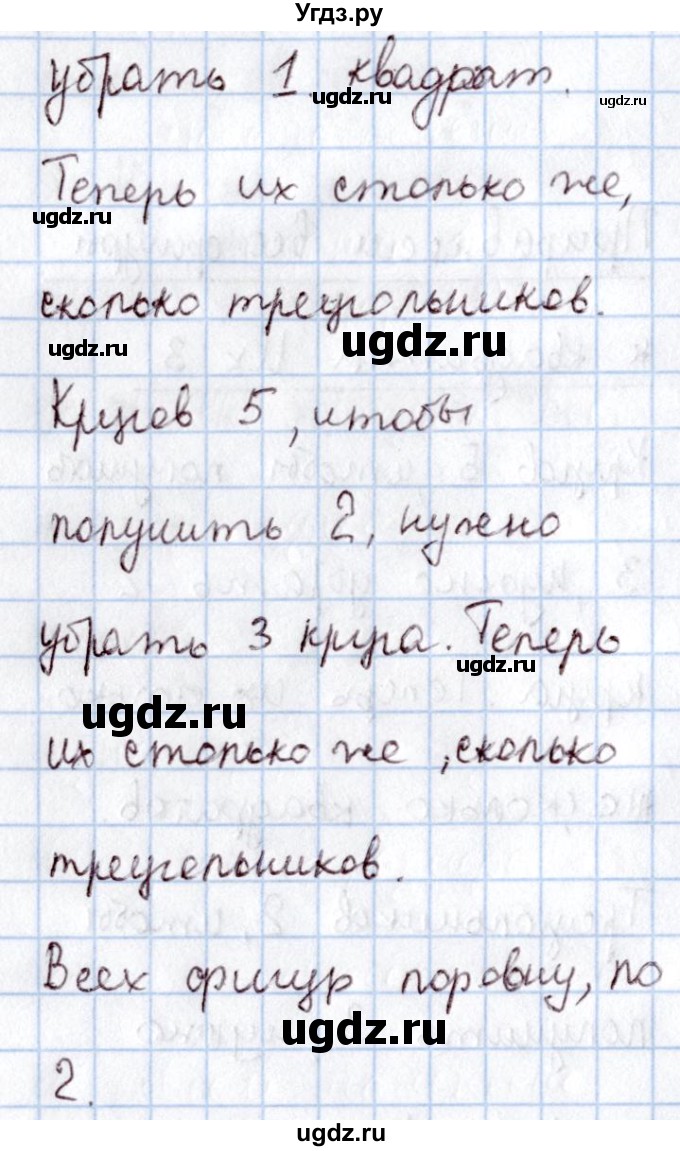 Угдз.ру
убрать 1 квадрат.
ugdz.ru
ugdz.ru
Теперь их столько же,
ugdz.ru
сколько треугольников.
ugdz.ru
ugdz.ru
Кругов 5, чтобы
получить 2, нужно
убрать 3 круга. Теперь
ugdz.ru
ugdz.ru
их столько же, сколько
треугольников.
Всех фигур поровну, по
ugdz.ru
2.
ugdz.ru